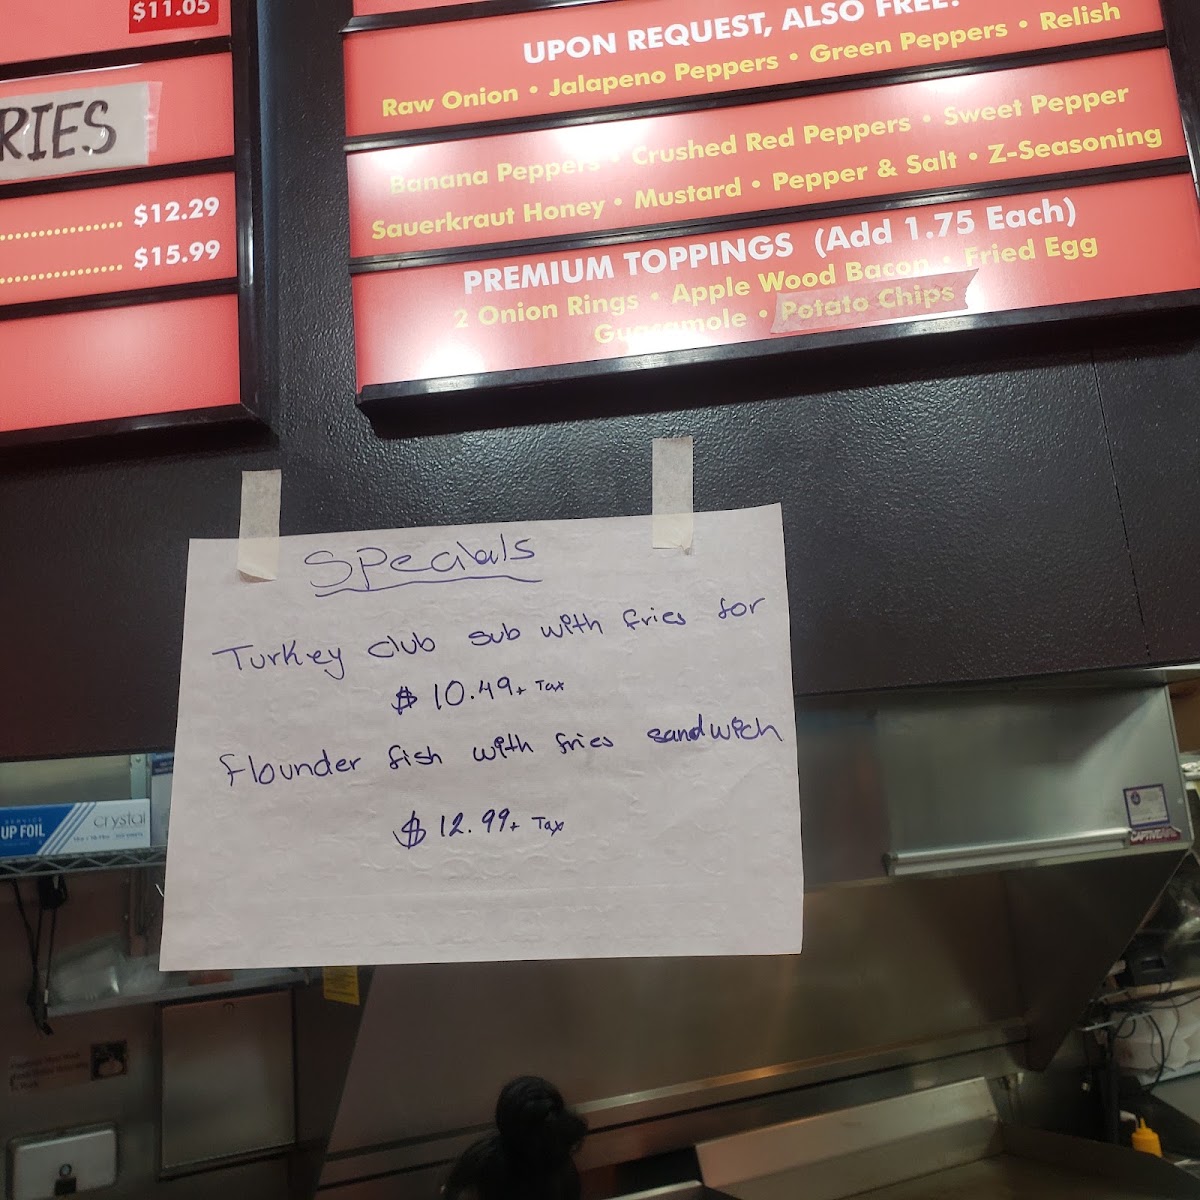 $11.05
RIES
$12.29
$15.99
UPON REQUEST, ALSO FREE:
Raw Onion • Jalapeno Peppers • Green Peppers • Relish
Banana Peppers • Crushed Red Peppers • Sweet Pepper
Sauerkraut Honey • Mustard • Pepper & Salt • Z-Seasoning
PREMIUM TOPPINGS (Add 1.75 Each)
2 Onion Rings • Apple Wood Bacon • Fried Egg
Guacamole • Potato Chips
Specials
Turkey club sub with fries for
$ 10.49+ Tax
flounder fish with fries sandwich
$ 12.99+ Tax
UP FOIL
crystal
CAPTIVEAIRE